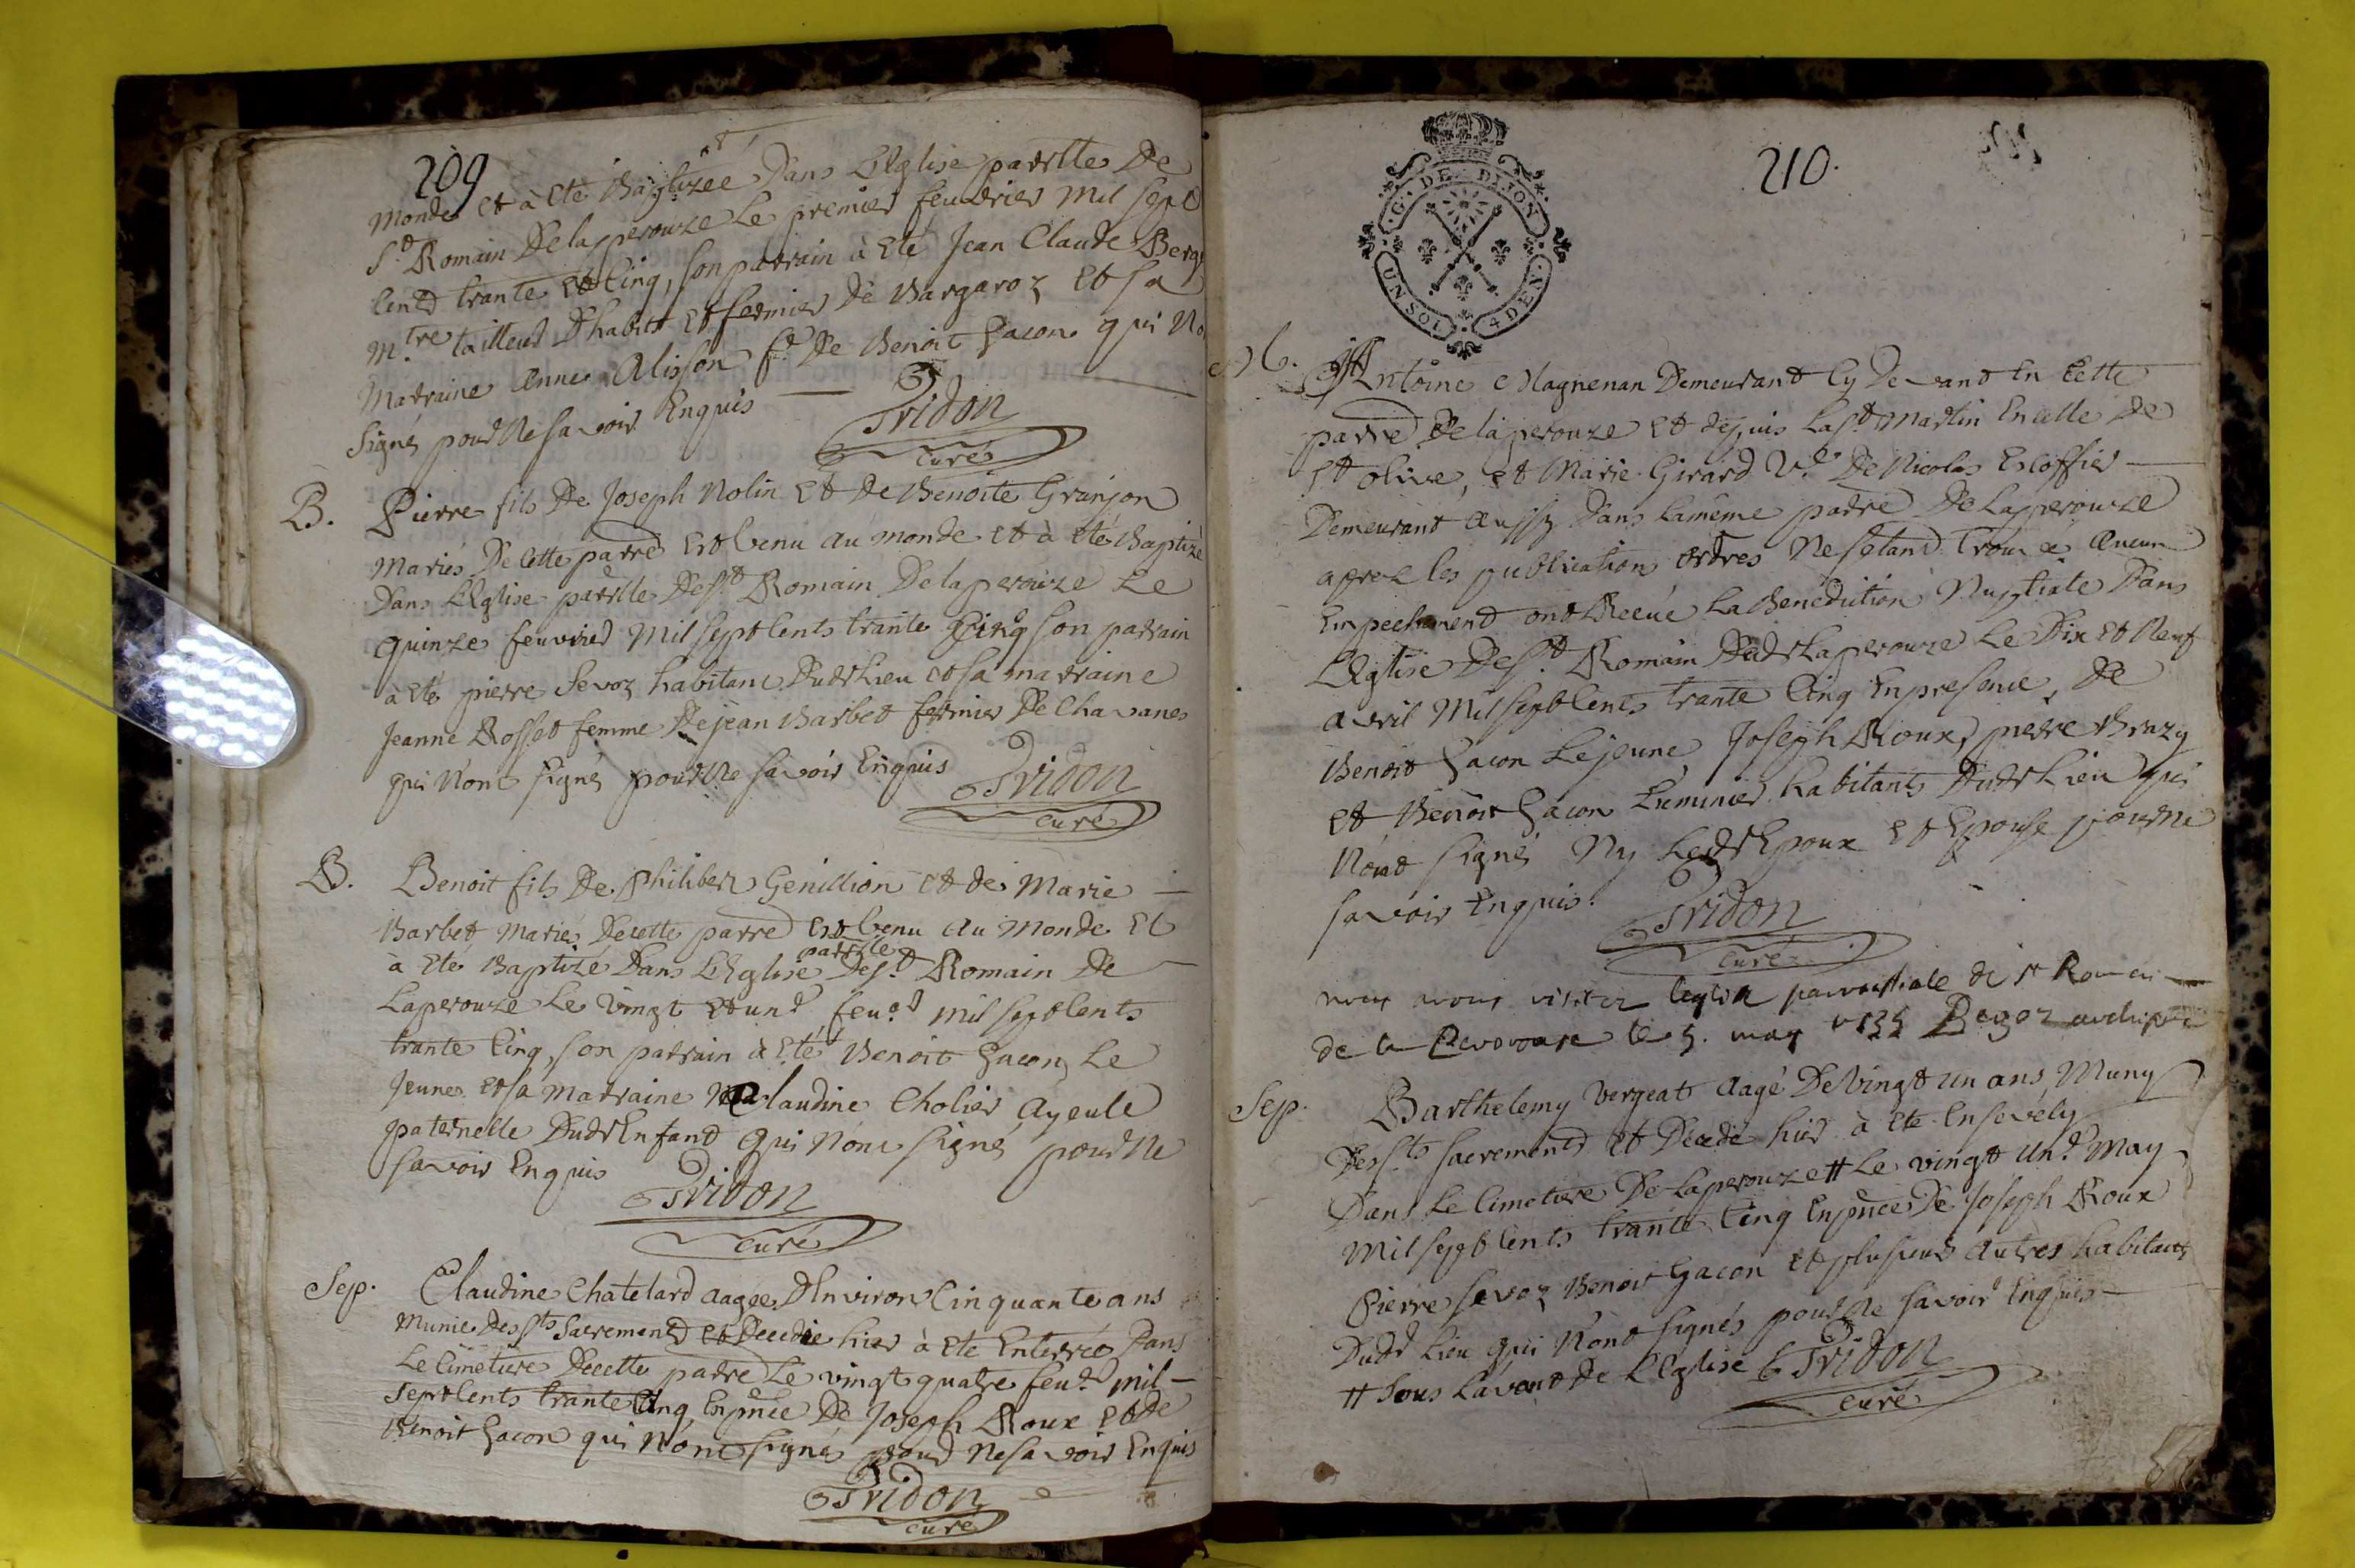 209
monde et à été Baptizée Dans L'Eglise parrlle De
St Romain Delaperouze Le premier feuvrier Mil Sept
Cent trante et Cinq, son parrain à été Jean Claude Berg
Mtre tailleur D'habit et fermier de Bargaroz et sa
Marraine Anne Alisson fe De Benoit Gacon qui No
Signés pour Ne savoir Enquis
Tridon
curé
B. Pierre fils De Joseph Nolin et de Benoite Granjon
Mariés De cette parre est venu au monde et à été Baptizé
Dans L'Eglise parrlle De St Romain De laperouze Le
quinze feuvrier Mil sept Cents trante Cinq son parrain
à été pierre Sevoz habitant Dudt Lieu et sa marraine
Jeanne Rosset femme De jean Barbet fermier De Chavanes
qui N'ont signés pour Ne savoir Enquis
Tridon
curé
B. Benoit fils De Philibert Genillion et de Marie
Barbet Mariés De cette parre est venu au Monde Et
à été Baptizé Dans L'Eglise parrlle De St Romain De
Laperouze Le vingt et un feur Mil sept Cents
trante Cinq, son parrain à été Benoit Gacon Le
Jeune et sa Marraine Claudine Cholier Ayeule
paternelle Dudt Enfant qui N'ont signé pour Ne
savoir Enquis
Tridon
curé
Sep. Claudine Chatelard aagée D'Environ Cinquante ans
Munie des Sts Sacrements et Decedée hier à été Enterrée Dans
Le Cimetiere De cette parre Le vingt quatre feur mil
Sept Cents trante Cinq En pnce De Joseph Roux et De
Benoit Gacon qui N'ont signés pour Ne savoir Enquis
Tridon
curé
210.
G. DE DIJON
UN SOL 4 DEN.
M. Antoine Magnenan Demeurant Cy Devant En Cette
parre De laperouze et depuis La St Martin En celle De
St olive, et Marie Girard Ve De Nicolas Escoffier
Demeurant aussy Dans la même parre De Laperouze
aprez les publications ordres Ne s'etant trouvé aucun
Empechement ont Receue La Benediction Nuptiale Dans
L'Eglise De St Romain Dudt Laperouze Le Dix et Neuf
avril Mil sept Cents trante Cinq En presence, De
Benoit Gacon Le jeune, Joseph Roux, pierre Brazy
et Benoit Gacon Luminier habitants Dudt Lieu qui
N'ont signés Ny Lesdts Epoux et Epouse pour Ne
savoir Enquis.
Tridon
curé
nous avons visiter l'eglise parroissiale de st Romain
de la Perouse le 5. may 1735
Sep. Barthelemy Vergeat aagé De vingt un ans, Muny
Des Sts sacrements et Decedé hier à été Ensevély
Dans Le Cimetiere De Laperouze # Le vingt un May
Mil sept Cents trante Cinq En pnce De Joseph Roux
Pierre Sevoz Benoit Gacon et plusieurs autres habitants
Dudt Lieu qui N'ont signés pour Ne savoir Enquis
# Sous L'avent De L'Eglise Tridon
curé